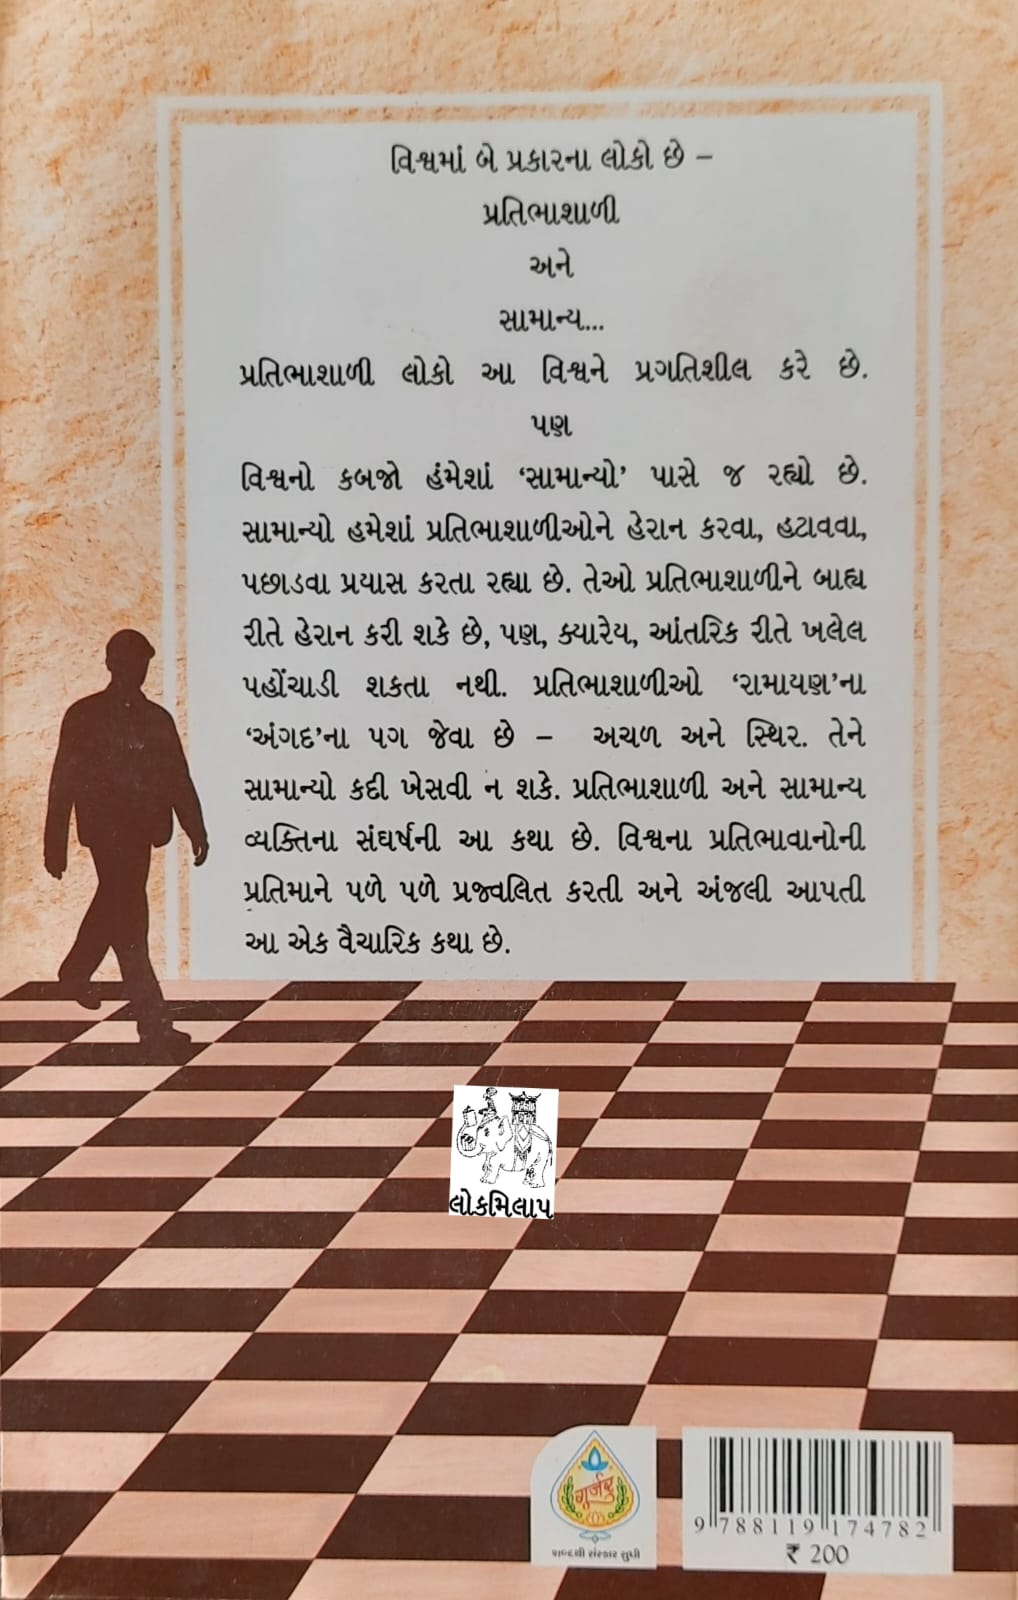 વિશ્વમાં બે પ્રકારના લોકો છે –
પ્રતિભાશાળી
અને
સામાન્ય...
પ્રતિભાશાળી લોકો આ વિશ્વને પ્રગતિશીલ કરે છે.
પણ
વિશ્વનો કબજો હંમેશાં ‘સામાન્યો’ પાસે જ રહ્યો છે.
સામાન્યો હમેશાં પ્રતિભાશાળીઓને હેરાન કરવા, હટાવવા,
પછાડવા પ્રયાસ કરતા રહ્યા છે. તેઓ પ્રતિભાશાળીને બાહ્ય
રીતે હેરાન કરી શકે છે, પણ, ક્યારેય, આંતરિક રીતે ખલેલ
પહોંચાડી શકતા નથી. પ્રતિભાશાળીઓ ‘રામાયણ’ના
‘અંગદ’ના પગ જેવા છે – અચળ અને સ્થિર. તેને
સામાન્યો કદી ખેસવી ન શકે. પ્રતિભાશાળી અને સામાન્ય
વ્યક્તિના સંઘર્ષની આ કથા છે. વિશ્વના પ્રતિભાવાનોની
પ્રતિમાને પળે પળે પ્રજ્વલિત કરતી અને અંજલી આપતી
આ એક વૈચારિક કથા છે.
લોકમિલાપ
ગુર્જર
શબ્દથી સંસ્કાર સુધી
9 788119 174782
₹ 200